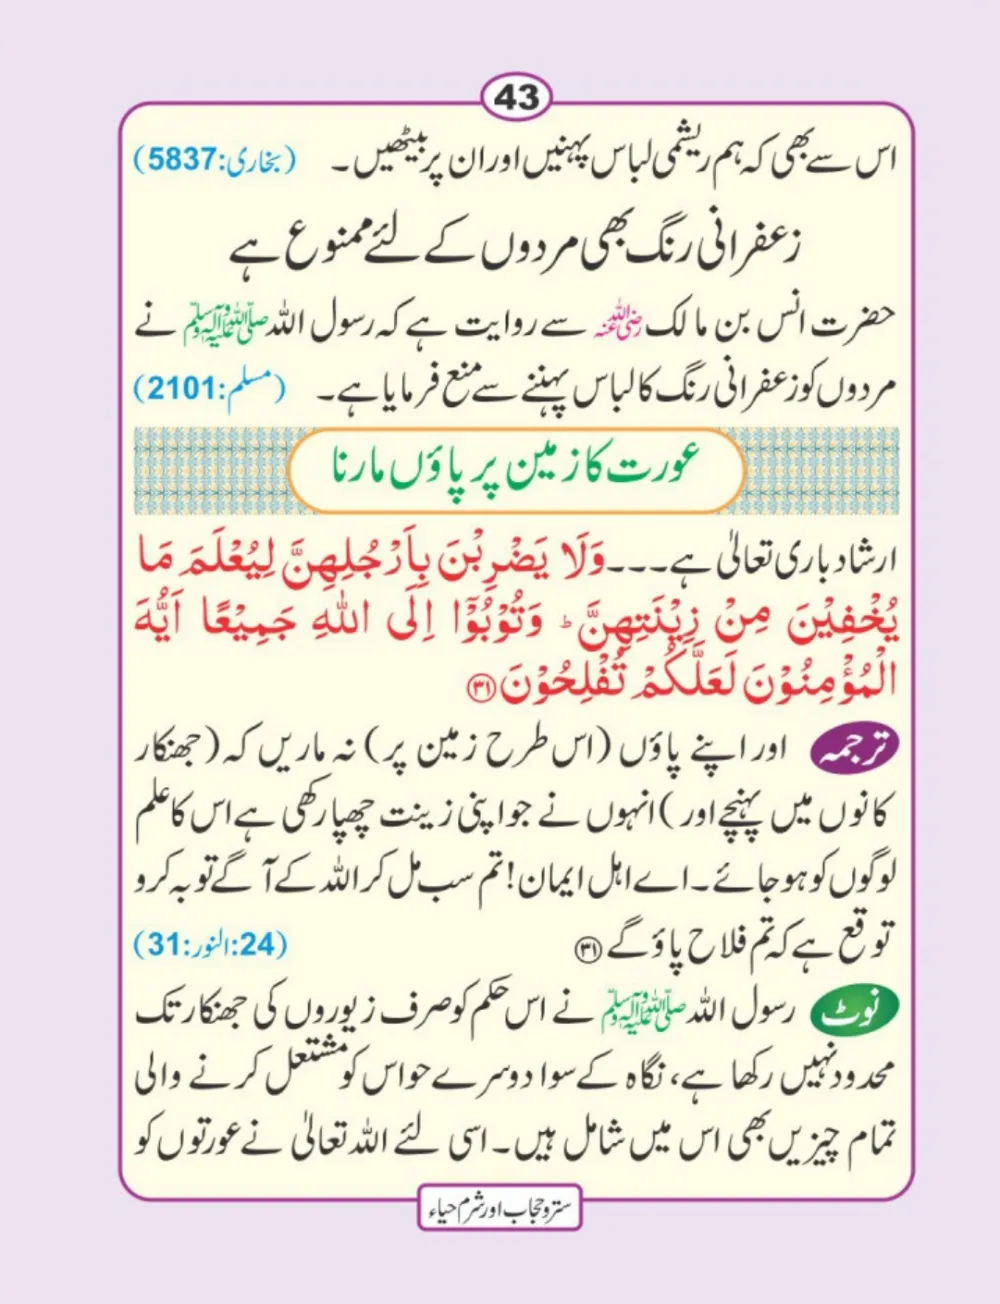 43
اس سے بھی کہ ہم ریشمی لباس پہنیں اور ان پر بیٹھیں۔ (بخاری:5837)
زعفرانی رنگ بھی مردوں کے لئے ممنوع ہے
حضرت انس بن مالک رضی اللہ عنہ سے روایت ہے کہ رسول اللہ صلی اللہ علیہ وآلہ وسلم نے
مردوں کو زعفرانی رنگ کا لباس پہننے سے منع فرمایا ہے۔ (مسلم:2101)
عورت کا زمین پر پاؤں مارنا
ارشاد باری تعالیٰ ہے۔۔۔ وَلَا يَضْرِبْنَ بِاَرْجُلِهِنَّ لِيُعْلَمَ مَا
يُخْفِيْنَ مِنْ زِيْنَتِهِنَّ ؕ وَتُوْبُوْٓا اِلَى اللّٰهِ جَمِيْعًا اَيُّهَ
الْمُؤْمِنُوْنَ لَعَلَّكُمْ تُفْلِحُوْنَ ﴿۳۱﴾
ترجمہ اور اپنے پاؤں (اس طرح زمین پر) نہ ماریں کہ (جھنکار
کانوں میں پہنچے اور) انہوں نے جو اپنی زینت چھپا رکھی ہے اس کا علم
لوگوں کو ہو جائے۔ اے اہل ایمان! تم سب مل کر اللہ کے آگے توبہ کرو
توقع ہے کہ تم فلاح پاؤ گے ﴿۳۱﴾ (24:النور:31)
نوٹ رسول اللہ صلی اللہ علیہ وآلہ وسلم نے اس حکم کو صرف زیوروں کی جھنکار تک
محدود نہیں رکھا ہے، نگاہ کے سوا دوسرے حواس کو مشتعل کرنے والی
تمام چیزیں بھی اس میں شامل ہیں۔ اسی لئے اللہ تعالیٰ نے عورتوں کو
ستر و حجاب اور شرم حیاء